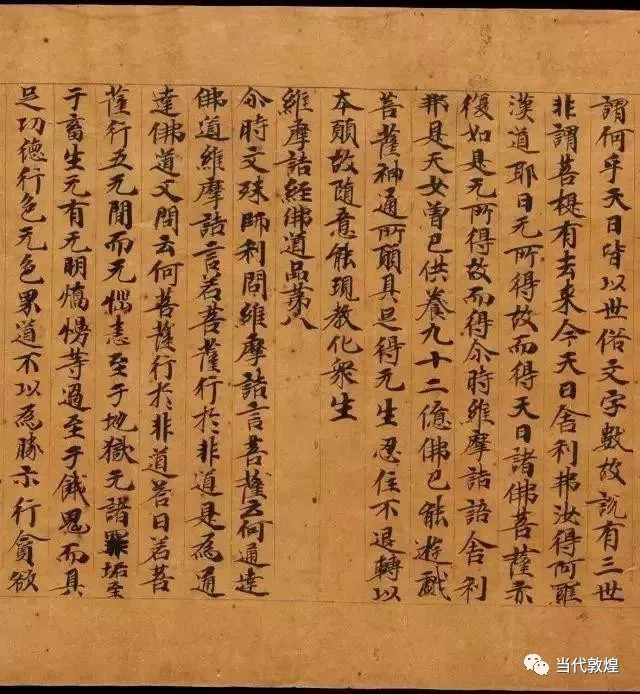 謂何乎天曰皆以世俗文字數故說有三世
非謂菩提有去來今天曰舍利弗汝得阿羅
漢道耶曰无所得故而得天曰諸佛菩薩亦
復如是无所得故而得尒時維摩詰語舍利
弗是天女曾已供養九十二億佛已能遊戲
菩薩神通所願具足得无生忍住不退轉以
本願故隨意能現教化眾生
維摩詰經佛道品第八
尒時文殊師利問維摩詰言菩薩云何通達
佛道維摩詰言若菩薩行於非道是為通
達佛道又問云何菩薩行於非道荅曰若菩
薩行五无間而无惱恚至于地獄无諸罪垢至
于畜生无有无明憍慢等過至于餓鬼而具
足功德行色无色界道不以為勝示行貪欲
当代敦煌